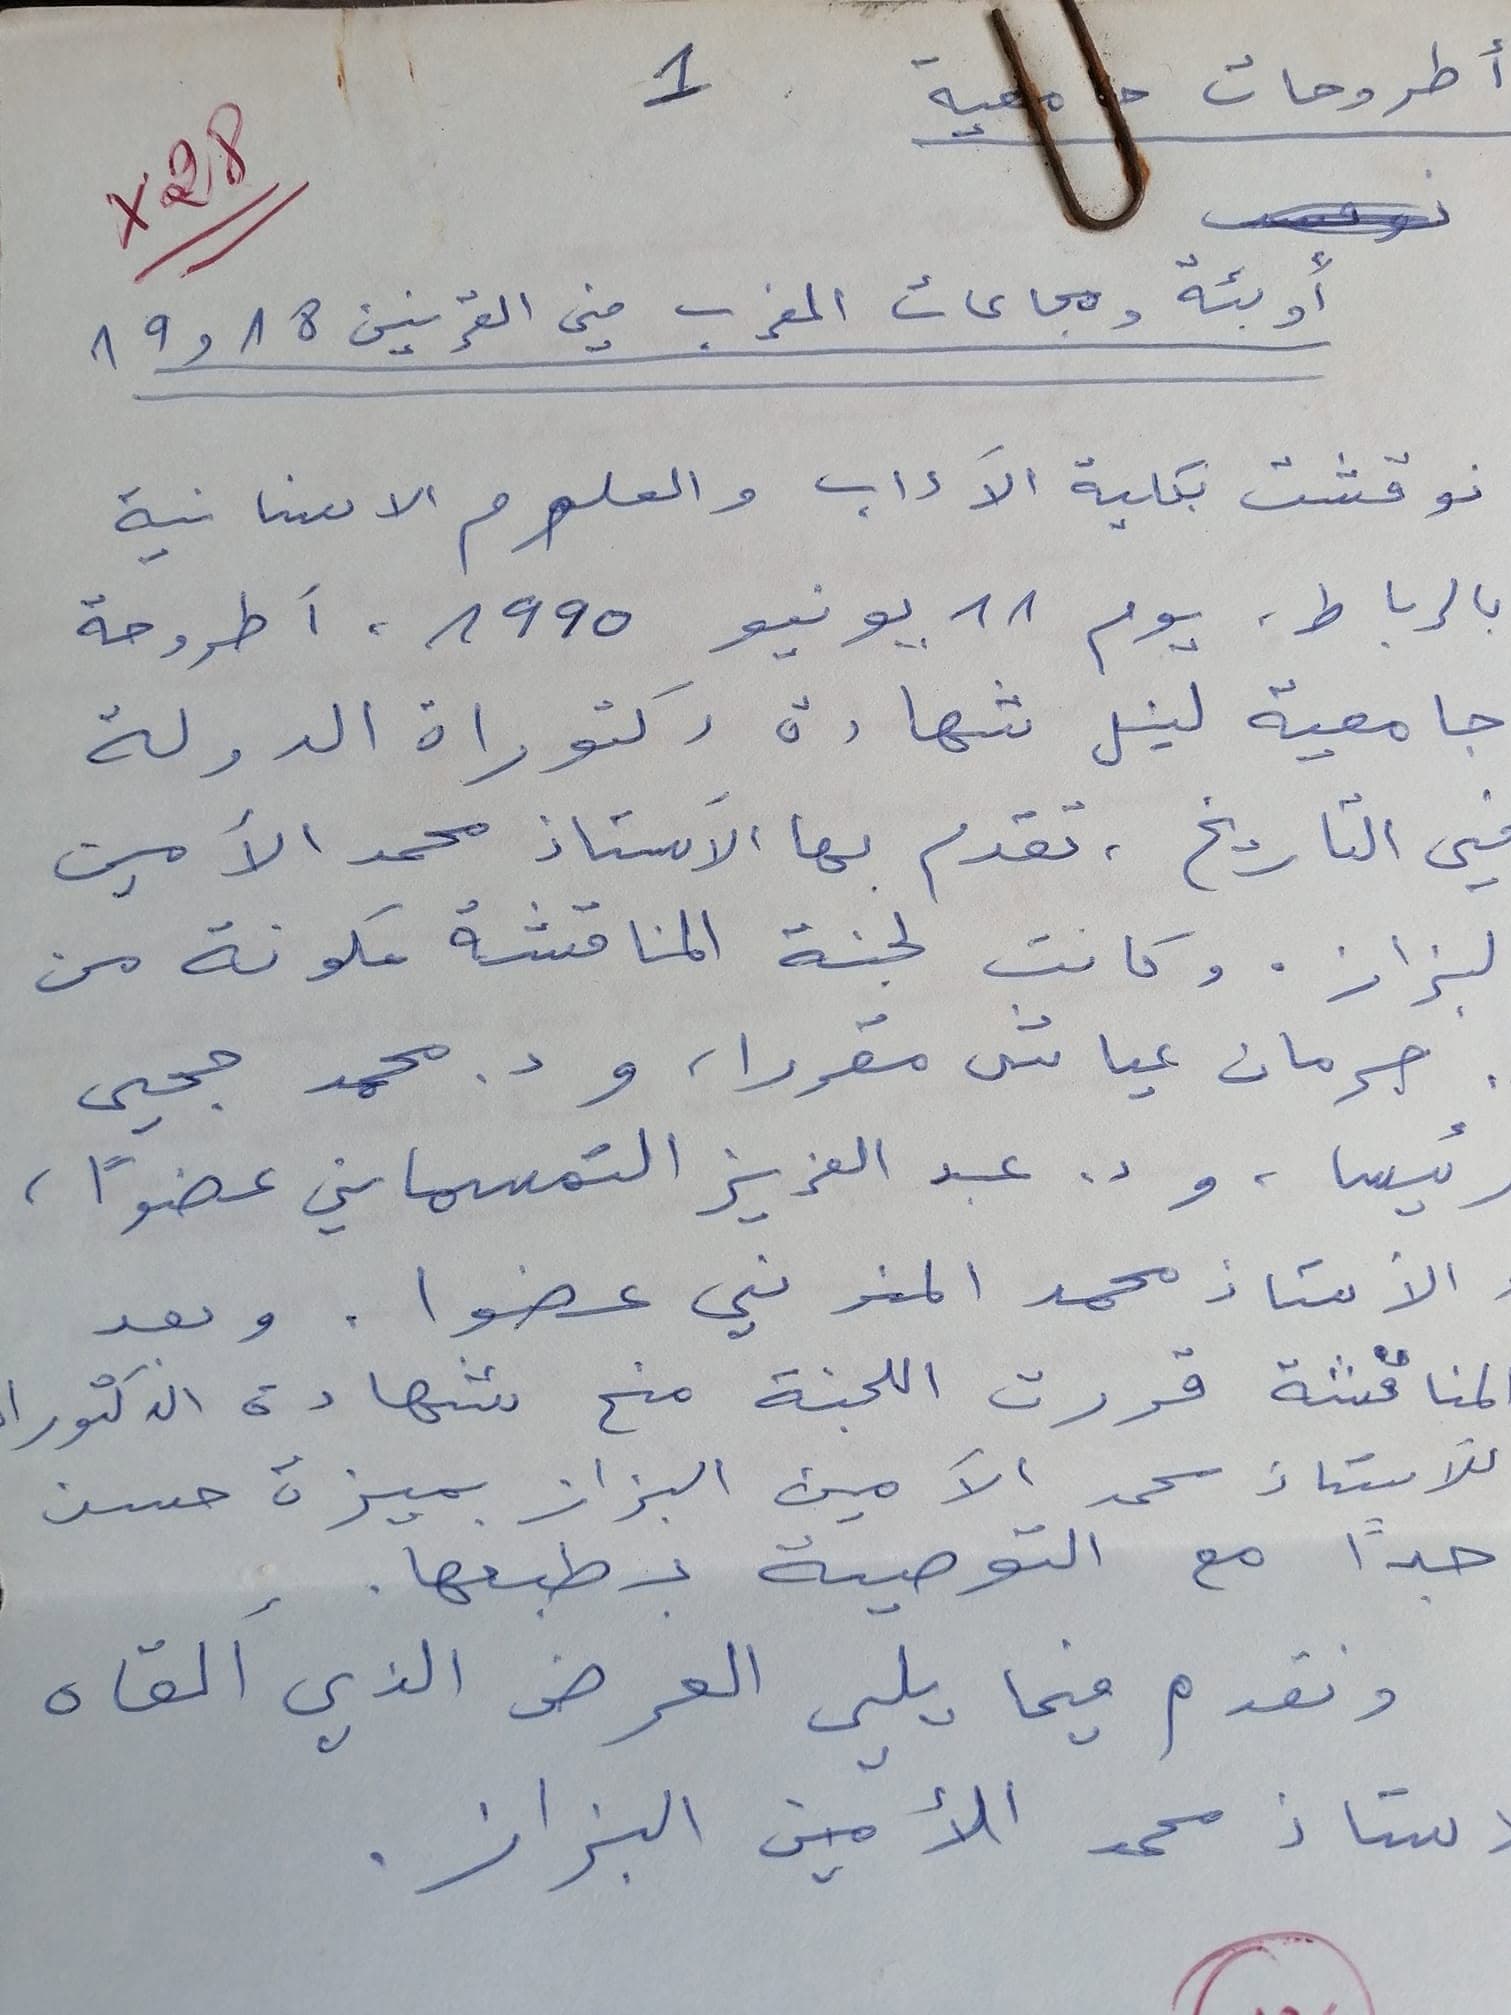 أطروحات جامعية 1
x28
أوبئة ومجاعات المغرب في القرنين 18 و19
نوقشت بكلية الآداب والعلوم الانسانية
بالرباط، يوم 11 يونيو 1990، أطروحة
جامعية لنيل شهادة دكتوراة الدولة
في التاريخ، تقدم بها الأستاذ محمد الأمين
لبزاز. وكانت لجنة المناقشة مكونة من
. جرمان عياش مقررا، و د. محمد حجي
رئيسا، و د. عبد العزيز التمسماني عضوًا،
الأستاذ محمد المنوني عضوا. وبعد
لمناقشة قررت اللجنة منح شهادة الدكتورا
للاستاذ محمد الأمين البزاز بميزة حسن
جدًا مع التوصية بطبعها.
ونقدم فيما يلي العرض الذي ألقاه
لاستاذ محمد الأمين البزاز.